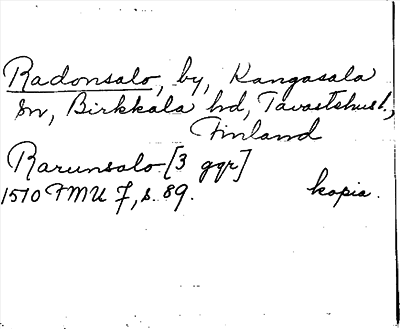 Radonsalo, by, Kangasala
sn, Birkkala hd, Tavastehus l.,
Finland
Rarunsalo [3 ggr]
1510 FMU 7, s. 89. kopia.